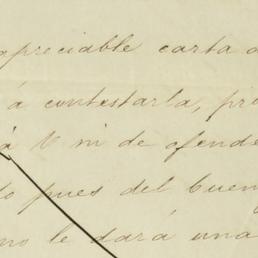 apreciable carta d
á contestarla, pro
á V ni de ofende
to pues del buen
no le dará una